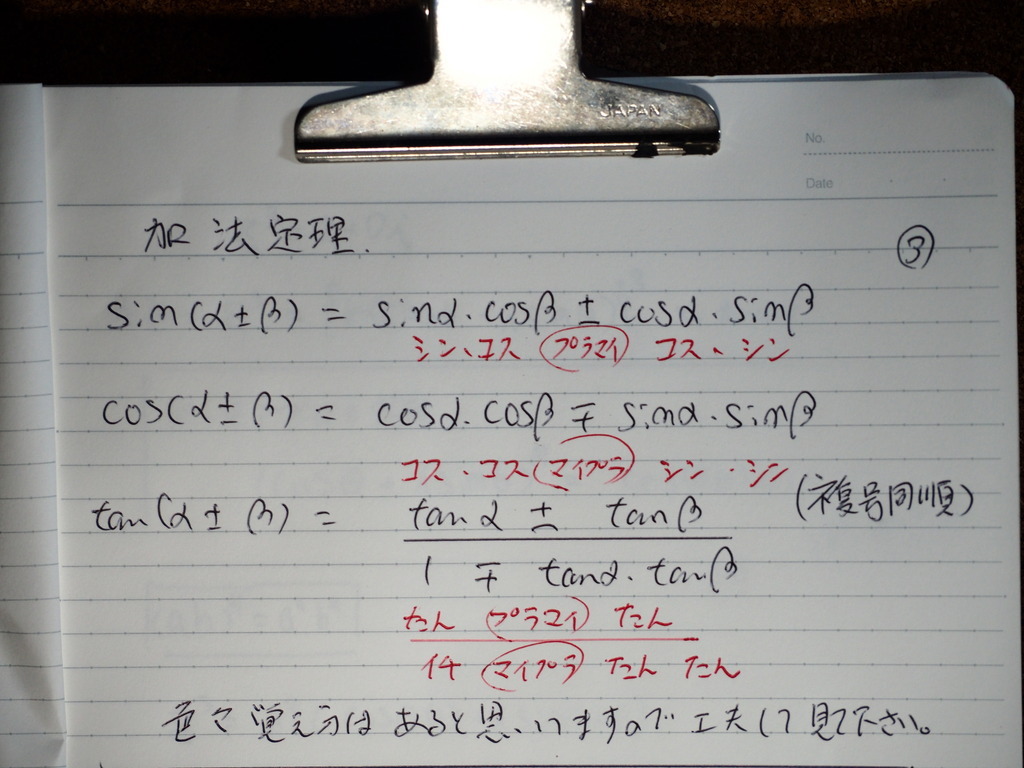 JAPAN
No.
Date
加法定理.
③
sin(α±β) = sinα・cosβ ± cosα・sinβ
シン・コス プラマイ コス・シン
cos(α±β) = cosα・cosβ ∓ sinα・sinβ
コス・コス マイプラ シン・シン
tan(α±β) = tanα ± tanβ
(複号同順)
1 ∓ tanα・tanβ
たん プラマイ たん
イチ マイプラ たん たん
色々覚え方はあると思いますので工夫して見て下さい。